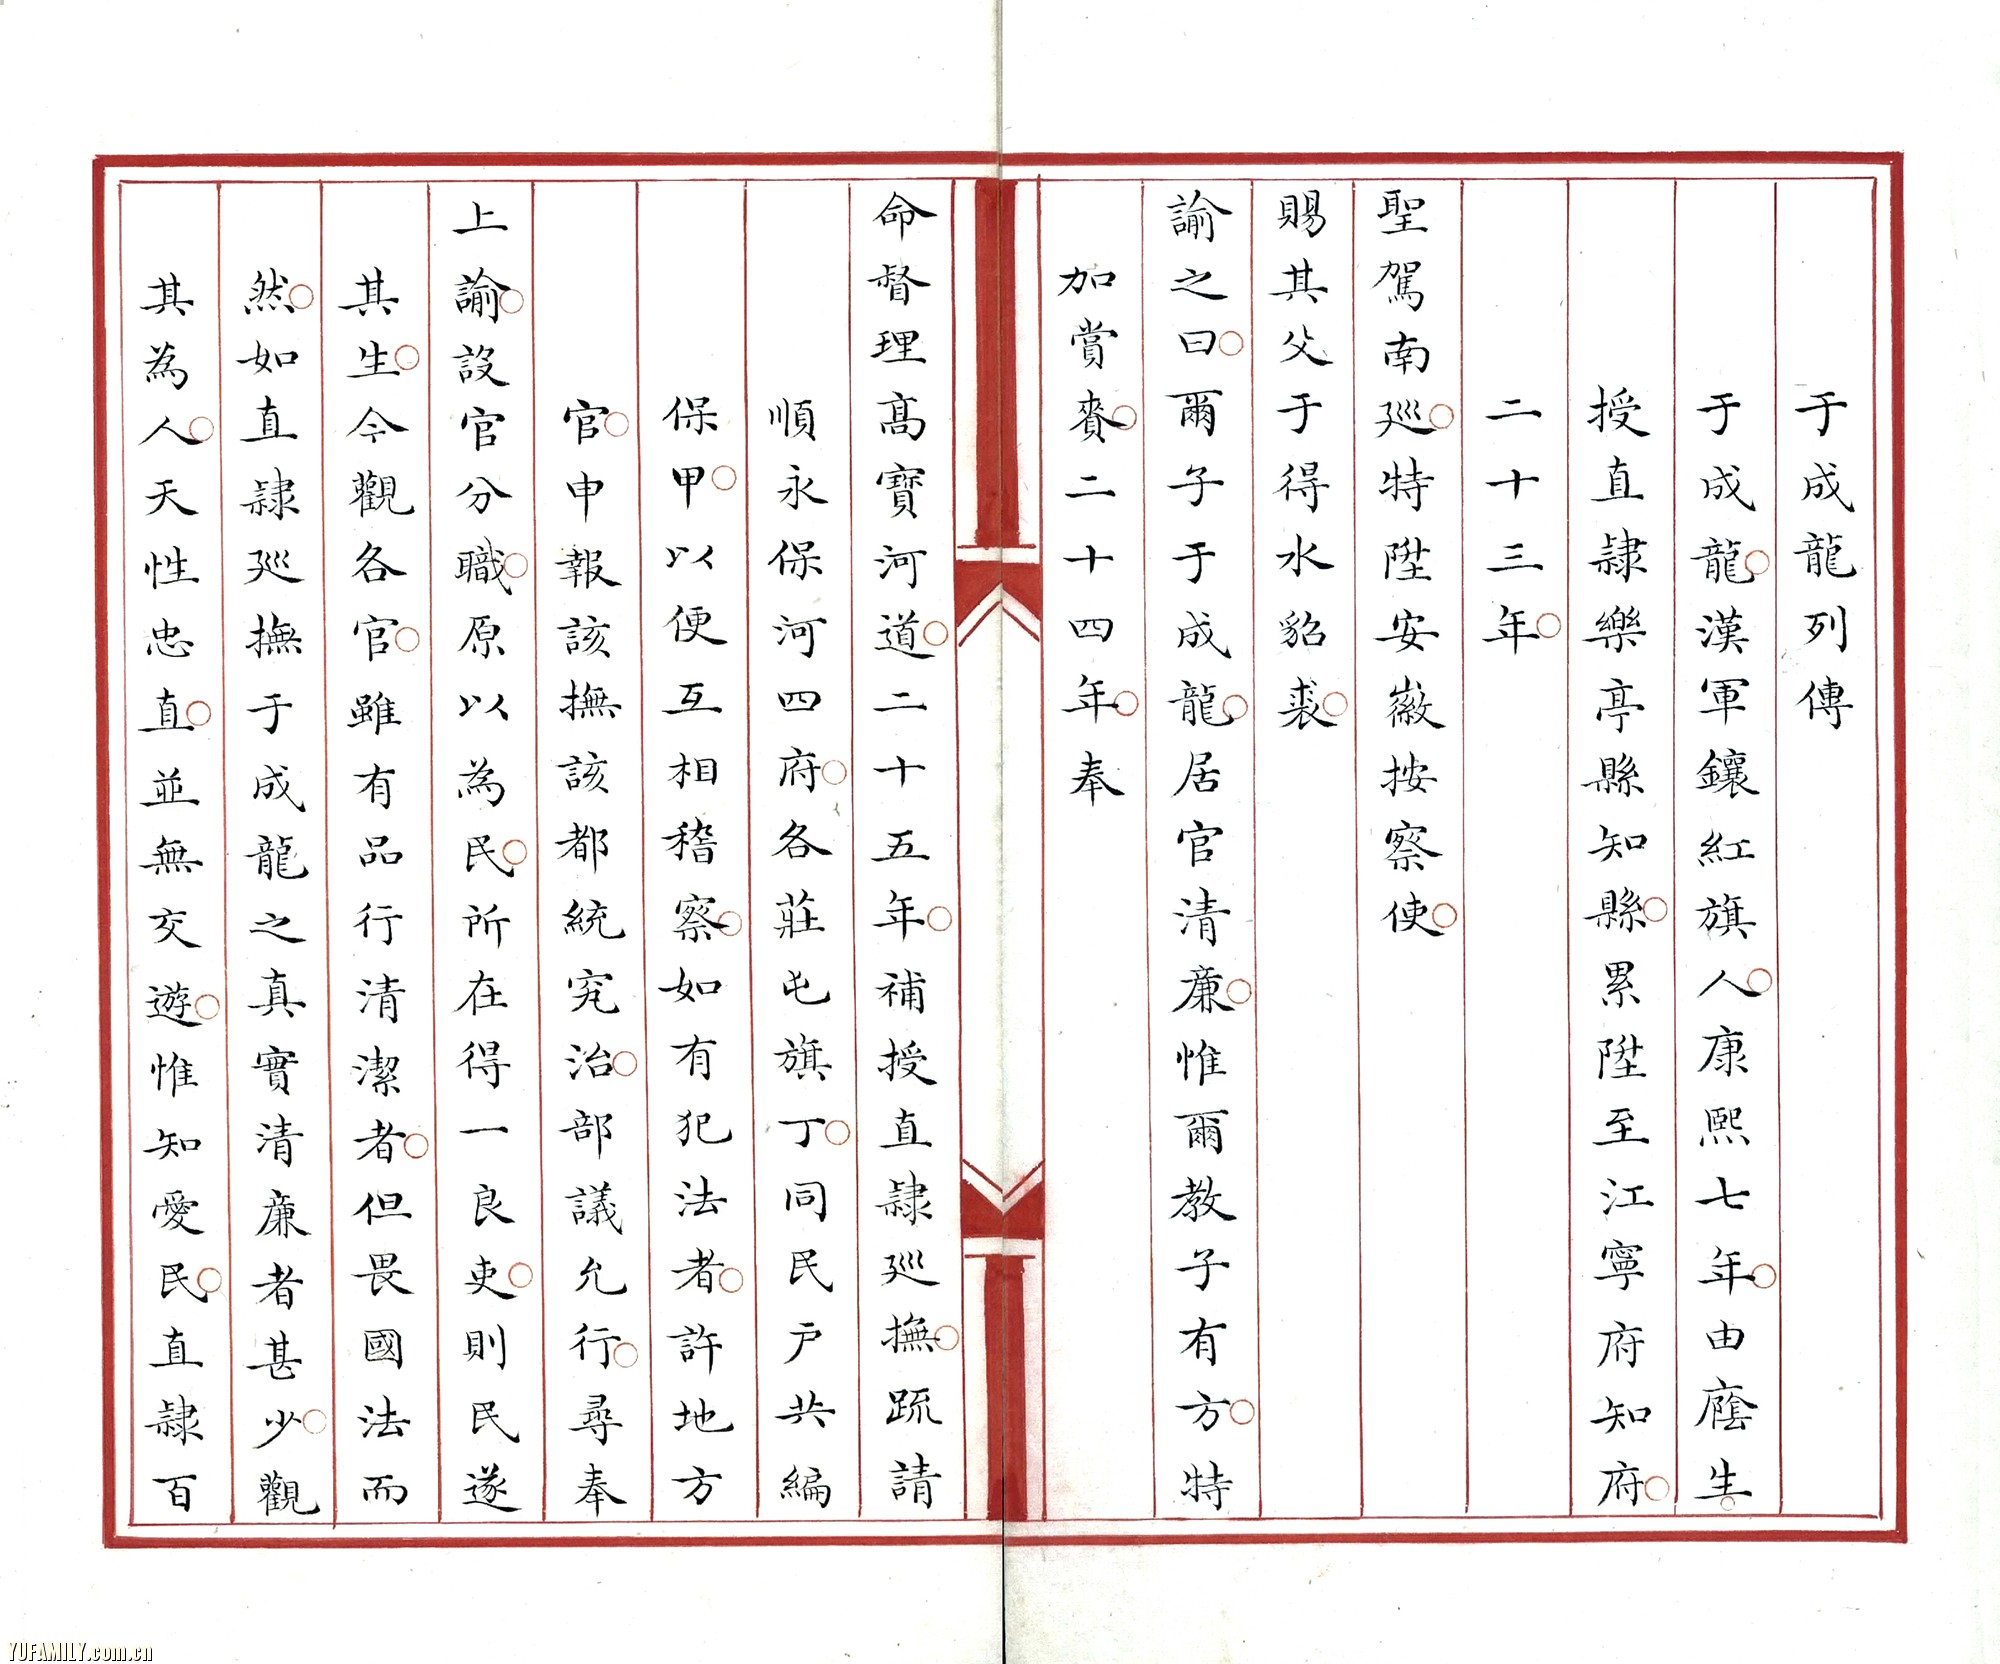 于成龍列傳
于成龍○漢軍鑲紅旗人○康熙七年○由廕生○
授直隸樂亭縣知縣○累陞至江寧府知府○
二十三年○
聖駕南廵○特陞安徽按察使○
賜其父于得水貂裘○
諭之曰○爾子于成龍○居官清亷○惟爾教子有方○特
加賞賚○二十四年○奉
命督理高寶河道○二十五年○補授直隸廵撫○疏請
順永保河四府○各莊屯旗丁○同民户共編
保甲○以便互相稽察○如有犯法者○許地方
官○申報該撫該都統究治○部議允行○尋奉
上諭○設官分職○原以為民○所在得一良吏○則民遂
其生○今觀各官○雖有品行清潔者○但畏國法而
然○如直隸廵撫于成龍之真實清亷者甚少○觀
其為人○天性忠直○並無交遊○惟知愛民○直隸百
YUFAMILY.com.cn